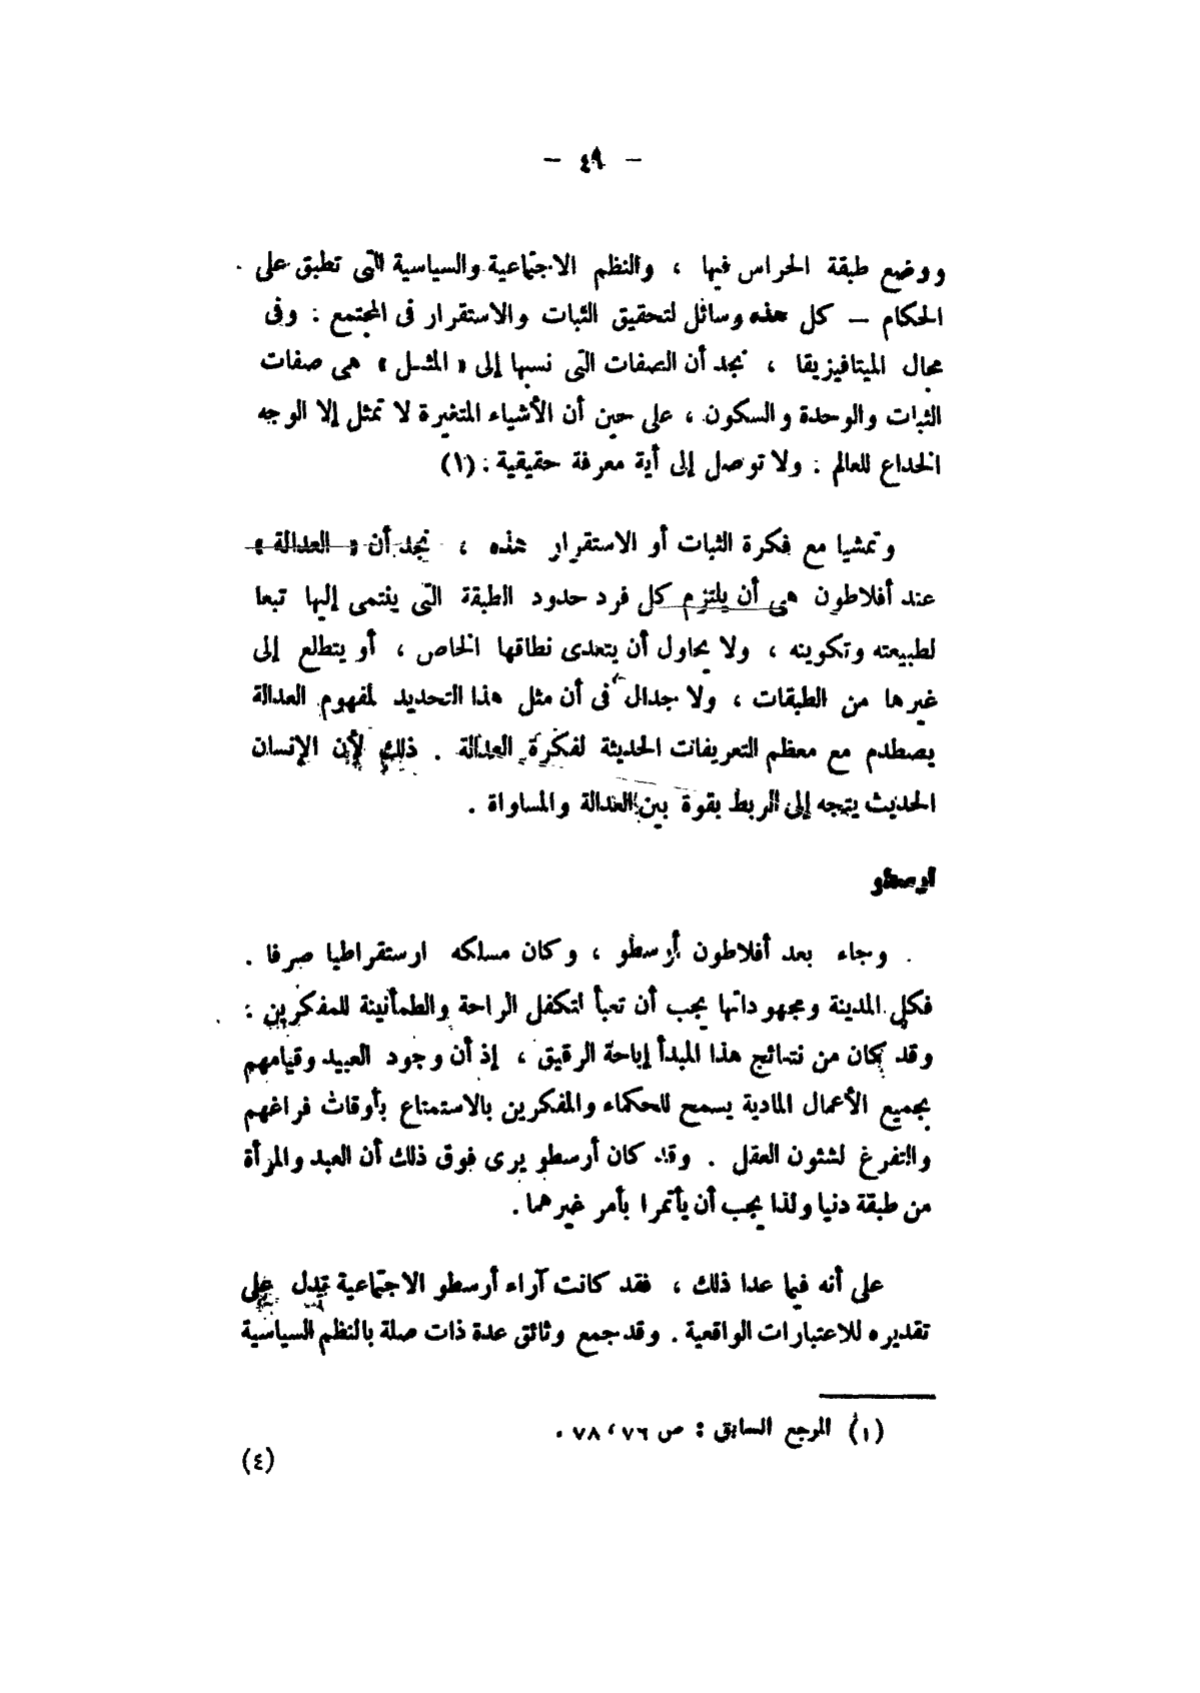 – ٤٩ –
ووضع طبقة الحراس فيها ، والنظم الاجتماعية والسياسية التى تطبق على
الحكام – كل هذه وسائل لتحقيق الثبات والاستقرار فى المجتمع : وفى
مجال الميتافيزيقا ، نجد أن الصفات التى نسبها إلى « المثل » هى صفات
الثبات والوحدة والسكون ، على حين أن الأشياء المتغيرة لا تمثل إلا الوجه
الخداع للعالم : ولا توصل إلى أية معرفة حقيقية : (١)
وتمشيا مع فكرة الثبات أو الاستقرار هذه ، نجد أن « العدالة »
عند أفلاطون هى أن يلتزم كل فرد حدود الطبقة التى ينتمى إليها تبعا
لطبيعته وتكوينه ، ولا يحاول أن يتعدى نطاقها الخاص ، أو يتطلع إلى
غيرها من الطبقات ، ولا جدال فى أن مثل هذا التحديد لمفهوم العدالة
يصطدم مع معظم التعريفات الحديثة لفكرة العدالة . ذلك لأن الإنسان
الحديث يتجه إلى الربط بقوة بين العدالة والمساواة .
أرسطو
وجاء بعد أفلاطون أرسطو ، وكان مسلكه ارستقراطيا صرفا .
فكل المدينة ومجهوداتها يجب أن تعبأ لتكفل الراحة والطمأنينة للمفكرين :
وقد كان من نتائج هذا المبدأ إباحة الرقيق ، إذ أن وجود العبيد وقيامهم
بجميع الأعمال المادية يسمح للحكماء والمفكرين بالاستمتاع بأوقات فراغهم
والتفرغ لشئون العقل . وقد كان أرسطو يرى فوق ذلك أن العبد والمرأة
من طبقة دنيا ولذا يجب أن يأتمرا بأمر غيرهما .
على أنه فيما عدا ذلك ، فقد كانت آراء أرسطو الاجتماعية تدل على
تقديره للاعتبارات الواقعية . وقد جمع وثائق عدة ذات صلة بالنظم السياسية
(١) المرجع السابق : ص ٧٦ ، ٧٨ .
(٤)